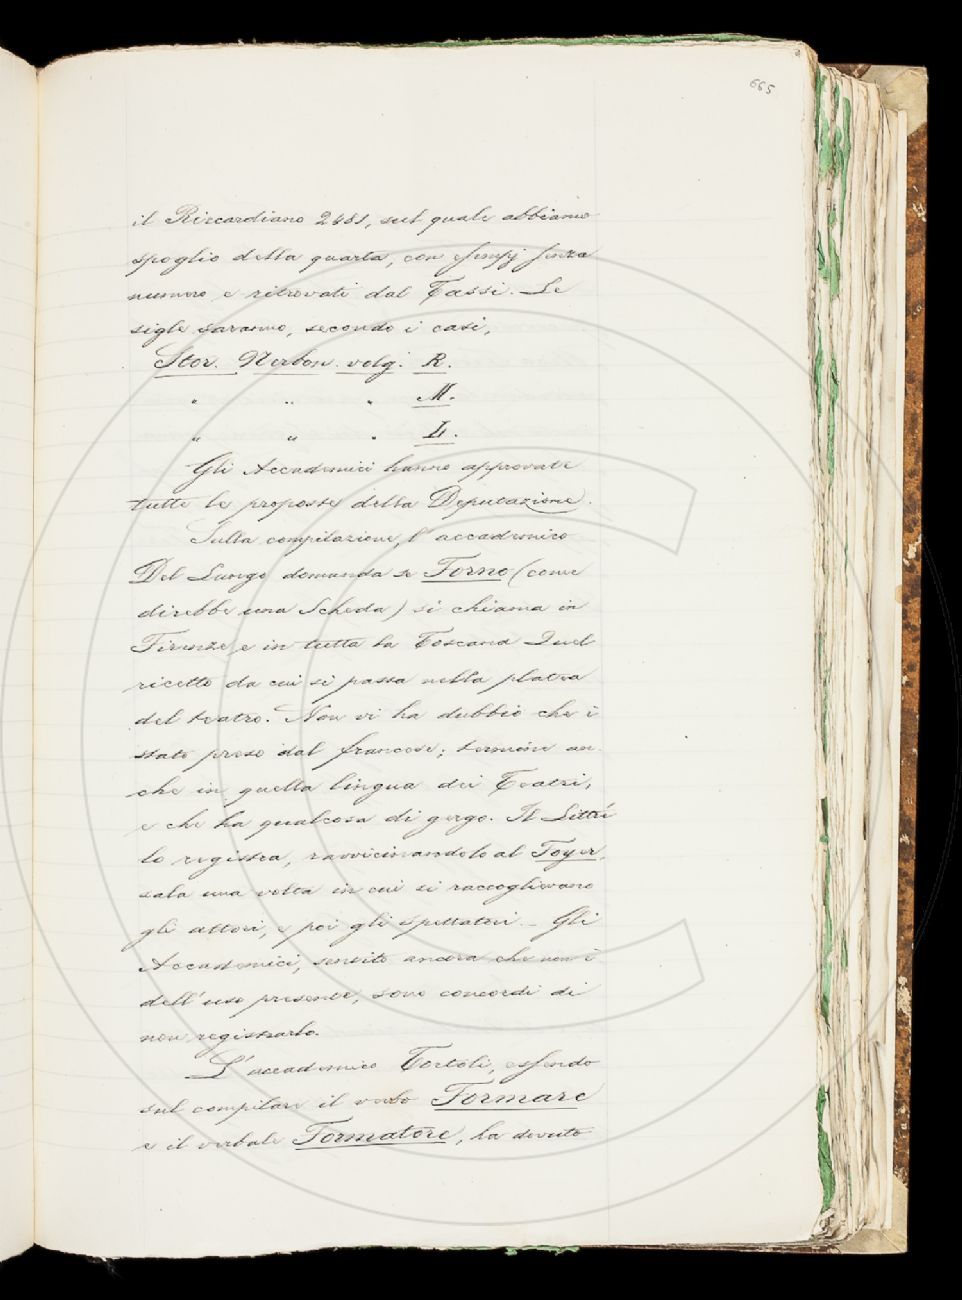 665
il Riccardiano 2481, sul quale abbiamo
spoglio della quarta, con esempj senza
numero e ritrovati dal Tassi. Le
sigle saranno, secondo i casi,
Stor. Nerbon. volg. R.
" " " M.
" " " L.
Gli Accademici hanno approvate
tutte le proposte della Deputazione.
Sulla compilazione, l'accademico
Del Lungo domanda se Forno (come
direbbe una Scheda) si chiama in
Firenze e in tutta la Toscana Quel
ricetto da cui si passa nella platea
del teatro. Non vi ha dubbio che è
stato preso dal francese; termine an-
che in quella lingua dei Teatri,
e che ha qualcosa di gergo. Il Littré
lo registra, ravvicinandolo al Foyer,
sala una volta in cui si raccoglievano
gli attori, e poi gli spettatori. – Gli
Accademici, sentito ancora che non è
dell'uso presente, sono concordi di
non registrarlo.
L'accademico Tortoli, essendo
sul compilare il verbo Formare
e il verbale Formatore, ha dovuto